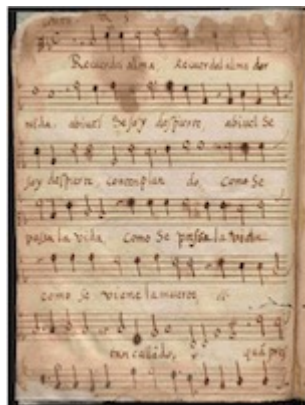 Recuerda alma, Recuerda alma dor
mida. abiuel Seso y despierte, abiuel Se
so y despierte, contemplan do, Como Se
passa la vida, como Se passa la vida
como se viene la muerte,
tan callado,